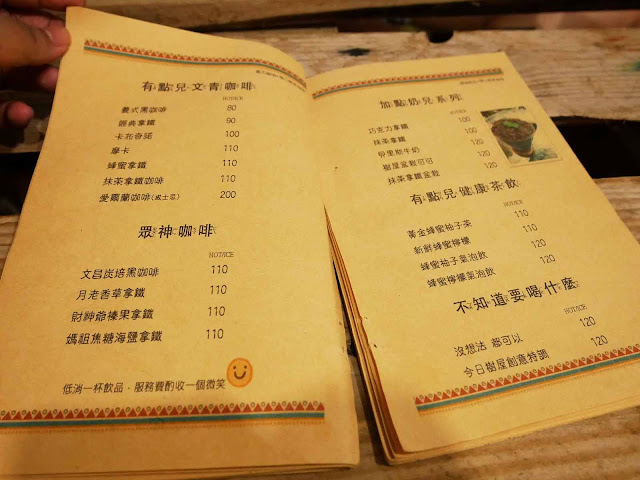 有點兒文青咖啡
HOT/ICE
義式黑咖啡 80
經典拿鐵 90
卡布奇諾 100
摩卡 110
蜂蜜拿鐵 110
抹茶拿鐵咖啡 110
愛爾蘭咖啡(威士忌) 200
眾神咖啡
HOT/ICE
文昌炭焙黑咖啡 110
月老香草拿鐵 110
財神爺榛果拿鐵 110
媽祖焦糖海鹽拿鐵 110
低消一杯飲品，服務費酌收一個微笑
加點奶兒系列
HOT/ICE
巧克力拿鐵 100
抹茶拿鐵 100
貝里斯牛奶 120
樹屋盆栽可可 120
抹茶拿鐵盆栽 120
有點兒健康茶飲
HOT/ICE
黃金蜂蜜柚子茶 110
新鮮蜂蜜檸檬 110
蜂蜜柚子氣泡飲 120
蜂蜜檸檬氣泡飲 120
不知道要喝什麼
HOT/ICE
沒想法 都可以 120
今日樹屋創意特調 120